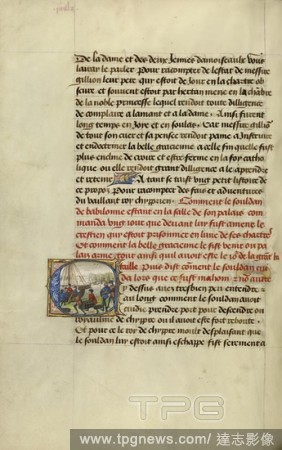 De la dame et des deux Jennes damoiseaulx vous
lairay le parler Pour racompter de lestat de messire
gillion leur pere qui estoit de Jour en la chartre ob
scure et souvent estoit par hertan mene en la chambre
de la noble princesse lequel rendoit toute diligence
de complaire a lamant et a la dame Ainsi furent
long temps en Joye et en soulas Car messire gillion
de tout son cuer et sa pensee rendoit paine a Instruire
et endoctriner la belle gracienne a celle fin quelle fust
plus encline de croire et estre ferme en la foy catho
lique ou elle rendoit grant diligence a le aprendre
et retenir A tant se taist ung petit listoire de
ce propos Pour racompter des fais et adventures
du vaillant roy chyprien Comment le souldan
de babilonne estant en la salle de son palais com
manda ung Jour que devant luy fust amene le
crestien quil tenoit prisonnier en lune de ses chartres
Et comment la belle gracienne le fist
taille Puis dist comment le souldan
da lors que ce fust mahom
y dessus aves tresbien peu entendre
au long comment le souldan avoit
prendre port pour descendre ou
royaulme de chyppre ou il avoit este fort reboute
Et pour ce le roy de chyppre moult desplaisant que
le souldan luy estoit ainsi eschappe fist serement a
TPG
www.tpgnews.com / 達志影像